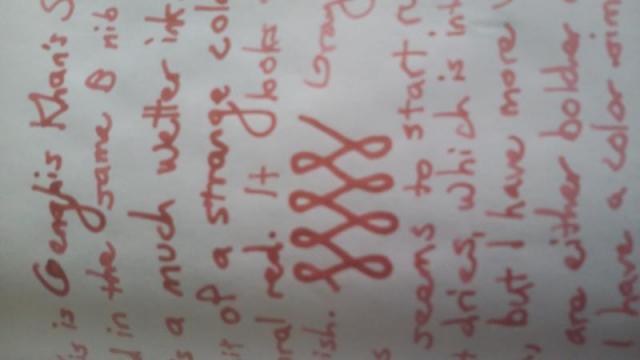 is is Genghis Khan's S
d in the same B nib
s a much wetter ink
it of a strange col
ral red. It looks
ish. Gray
s seems to start r
t dries, which is int
, but I have more
are either bolder
I have a color sim